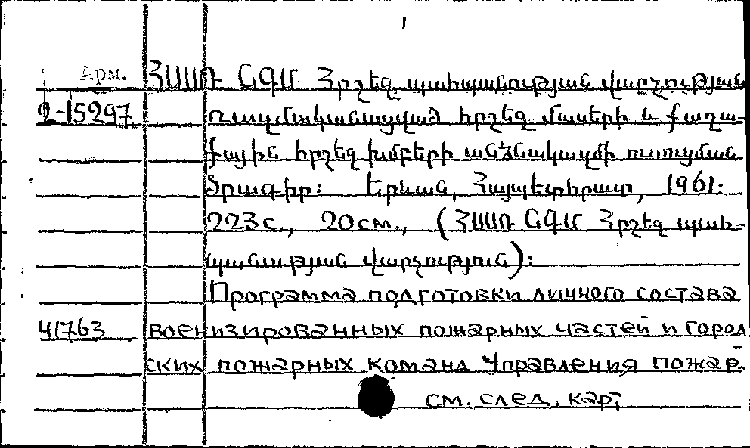 1
Арм. ՀՍՍՌ ՆԳՄ Հրշեջ պահպանության վարչության
2-15297 ռազմականացված հրշեջ մասերի և քաղա-
քային հրշեջ խմբերի անձնակազմի ուսուցման
ծրագիր: Երևան, Հայպետհրատ, 1961.
223с., 20см., (ՀՍՍՌ ՆԳՄ Հրշեջ պահ-
պանության վարչություն):
Программа подготовки личного состава
41763 военизированных пожарных частей и город
ских пожарных команд Управления пожар.
см. след. карт